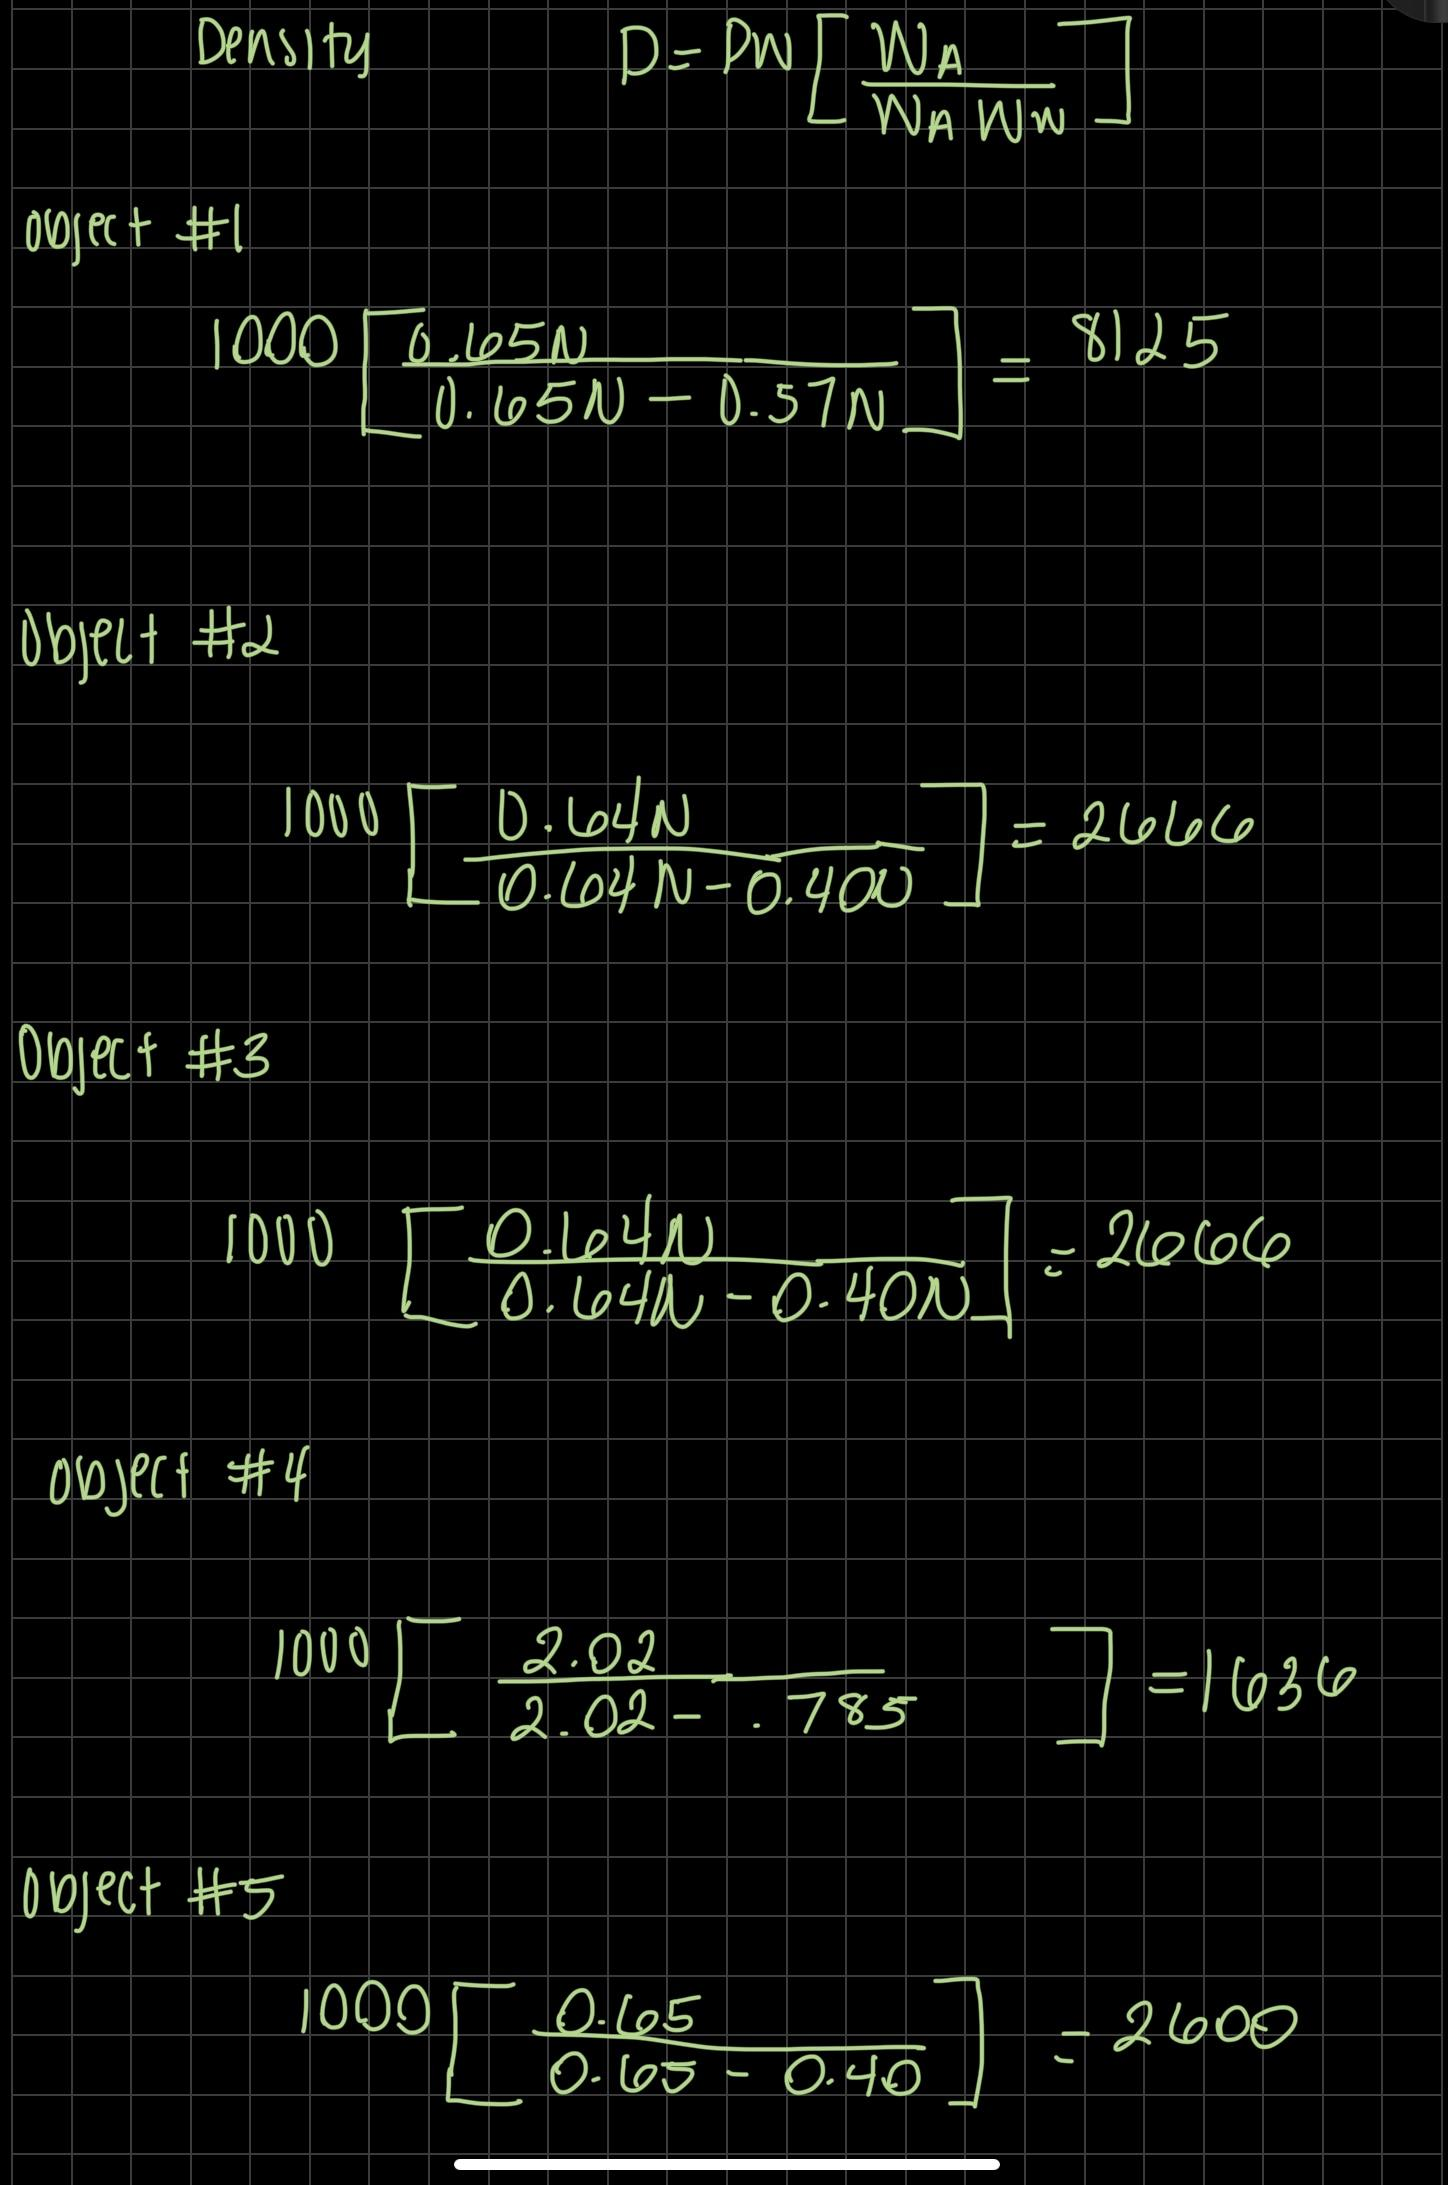 Density D = PW [ WA / WA WW ]
object #1
1000 [ 0.65N / 0.65N - 0.57N ] = 8125
Object #2
1000 [ 0.64N / 0.64N - 0.40N ] = 2666
Object #3
1000 [ 0.64N / 0.64N - 0.40N ] = 2666
object #4
1000 [ 2.02 / 2.02 - .785 ] = 1636
object #5
1000 [ 0.65 / 0.65 - 0.40 ] = 2600